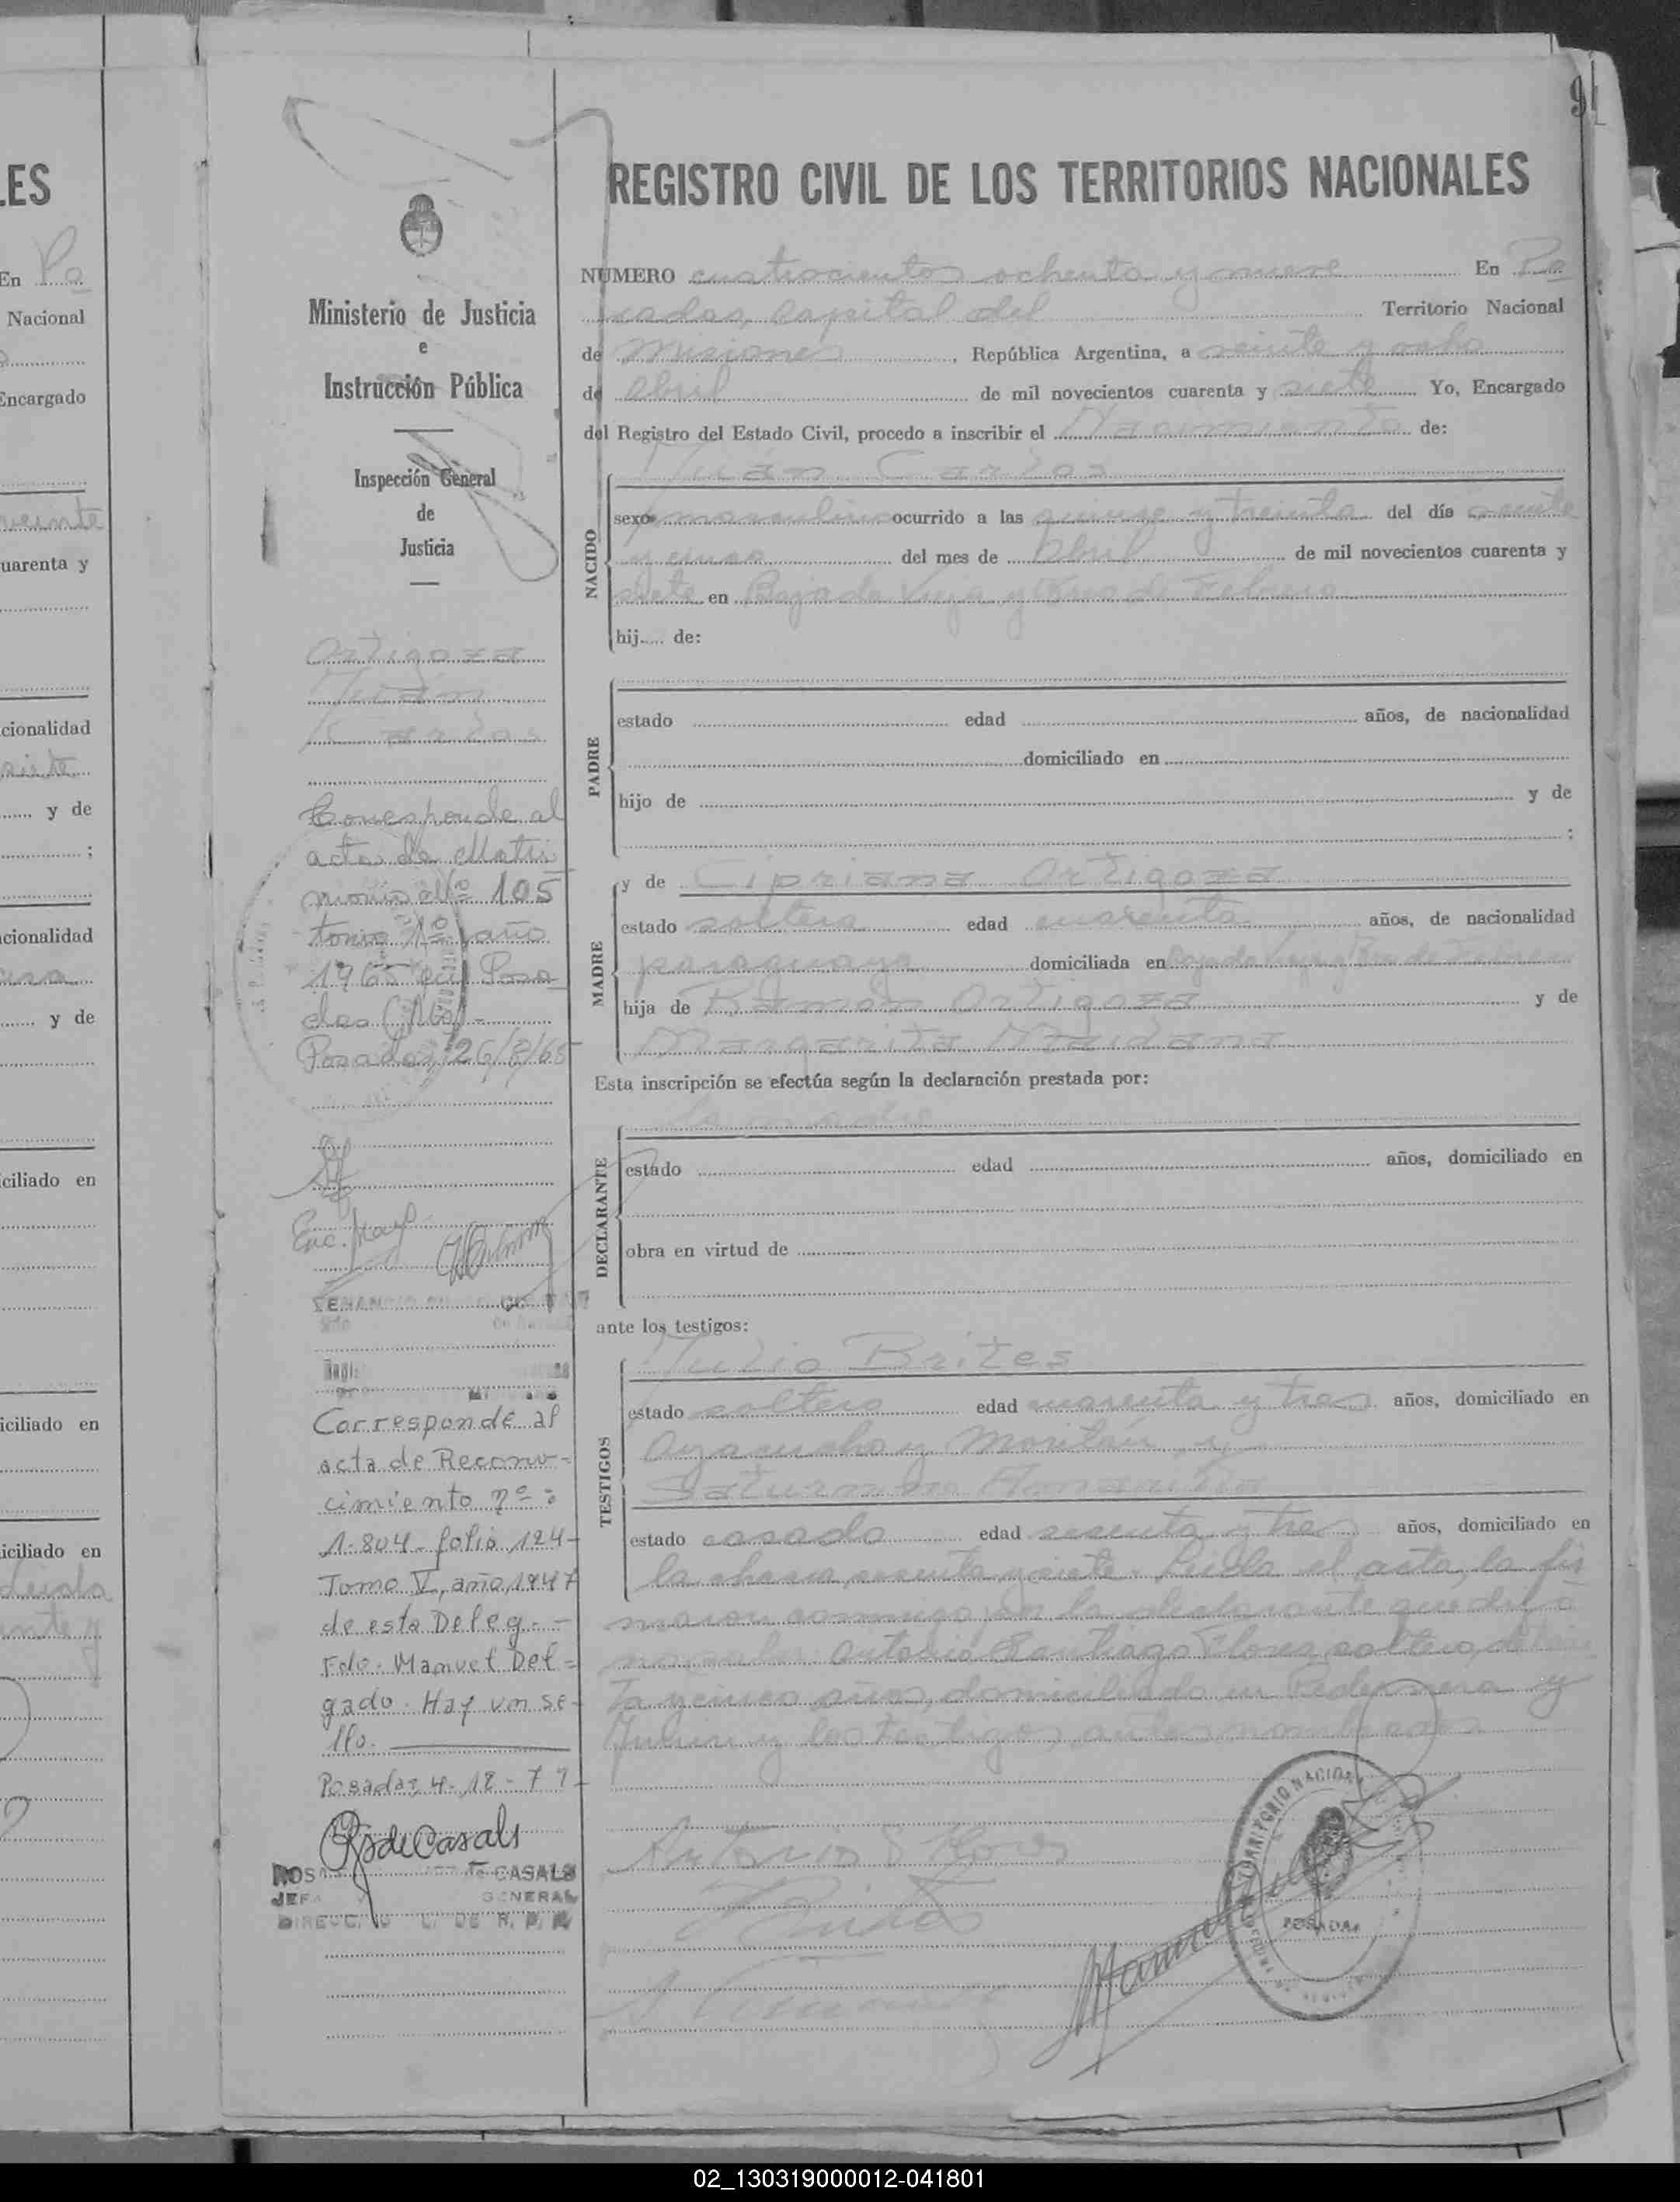 91
REGISTRO CIVIL DE LOS TERRITORIOS NACIONALES
NUMERO cuatrocientos ochenta y nueve En Po
sadas, capital del Territorio Nacional
de Misiones, República Argentina, a veinte y ocho
de abril de mil novecientos cuarenta y siete Yo, Encargado
del Registro del Estado Civil, procedo a inscribir el Nacimiento de:
Juan Carlos
NACIDO
sexo masculino ocurrido a las quince y treinta del día veinte
y cinco del mes de Abril de mil novecientos cuarenta y
siete en Bajada Vieja y Tres de Febrero
hij..... de:
PADRE
estado edad años, de nacionalidad
domiciliado en
hijo de y de
;
MADRE
y de Cipriana Ortigoza
estado soltera edad cuarenta años, de nacionalidad
paraguaya domiciliada en Bajada Vieja y Tres de Febrero
hija de Ramón Ortigoza y de
Margarita Maidana
Esta inscripción se efectúa según la declaración prestada por:
la madre
DECLARANTE
estado edad años, domiciliado en
obra en virtud de
ante los testigos:
TESTIGOS
Julio Brites
estado soltero edad cuarenta y tres años, domiciliado en
Ayacucho y Moritán y
Saturnino
estado casado edad sesenta y tres años, domiciliado en
la chacra sesenta y siete. Leída el acta, la fir
maron conmigo, por la declarante que dijo
no saber Antonio Santiago Flores, soltero, de
ta y cinco años, domiciliado en Pedernera y
Junin y los testigos antes nombrados
Antonio S Flores
Brites
TERRITORIO NACIONAL
POSADAS
Ministerio de Justicia
e
Instrucción Pública
Inspección General
de
Justicia
Ortigoza
Juan
Carlos
Corresponde al
acta de Matri
monio Nº 105
tomo 1º año
1965 en Posa
das (Mnes)-
Posadas, 26/8/65
Corresponde al
acta de Recono-
cimiento nº:
1.804- folio 124-
Tomo V, año 1947
de esta Deleg.-
Fdo. Manuel Del=
gado. Hay un se-
llo.
Posadas, 4-18-77
RsdeCasals
ROSA CASALS
JEFA GENERAL
DIRECC. DE R. P.
LES
En Po
Nacional
Encargado
veinte
uarenta y
cionalidad
siete
y de
;
cionalidad
y de
ciliado en
iciliado en
iciliado en
Leida
02_130319000012-041801